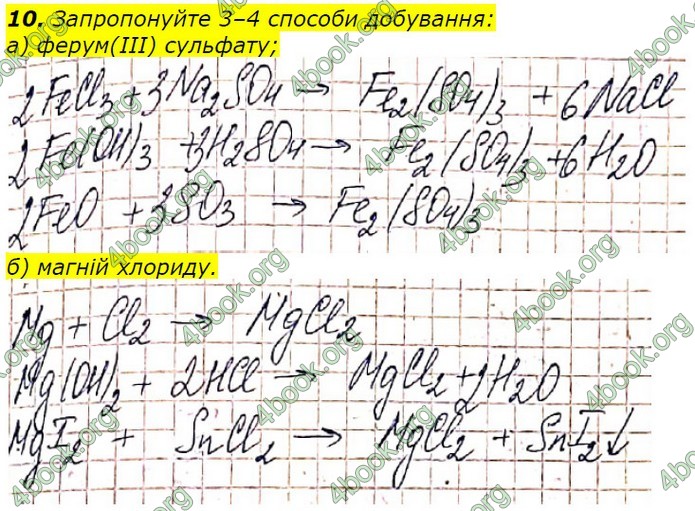 10. Запропонуйте 3–4 способи добування:
а) ферум(III) сульфату;
2FeCl3 + 3Na2SO4 → Fe2(SO4)3 + 6NaCl
2Fe(OH)3 + 3H2SO4 → Fe2(SO4)3 + 6H2O
2FeO + 3SO3 → Fe2(SO4)3
б) магній хлориду.
Mg + Cl2 → MgCl2
Mg(OH)2 + 2HCl → MgCl2 + 2H2O
MgI2 + SnCl2 → MgCl2 + SnI2↓
4book.org